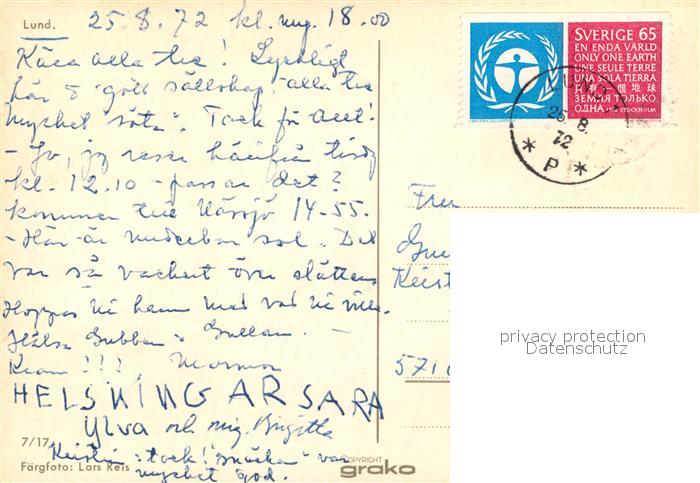 Lund.
25.8.72 kl. 18.00
Kära alla tre! Lyckligt
här & gott sällskap - alla tre
mycket "söta". Tack för allt-
- Jo, jag reser härifrån tisdag
kl. 12.10 - passar det?
kommer till Nässjö 14-55.
- Här är underbar sol. Det
var så vackert över slätten.
Hoppas ni hann med vad ni ville.
Hälsa Gubben & Gullan. -
Kram!!! Mormor
HELSNINGAR SARA
Ylva och mig. Birgitta
Kerstin: tack! "snäckan" var
mycket god.
7/17
Färgfoto: Lars Reis
COPYRIGHT
grako
SVERIGE 65
EN ENDA VÄRLD
ONLY ONE EARTH
UNE SEULE TERRE
UNA SOLA TIERRA
只有一個地球
ЗЕМЛЯ ТОЛЬКО
ОДНА
STOCKHOLM
LUND
25.8.
72
* P *
Fru
571
privacy protection
Datenschutz